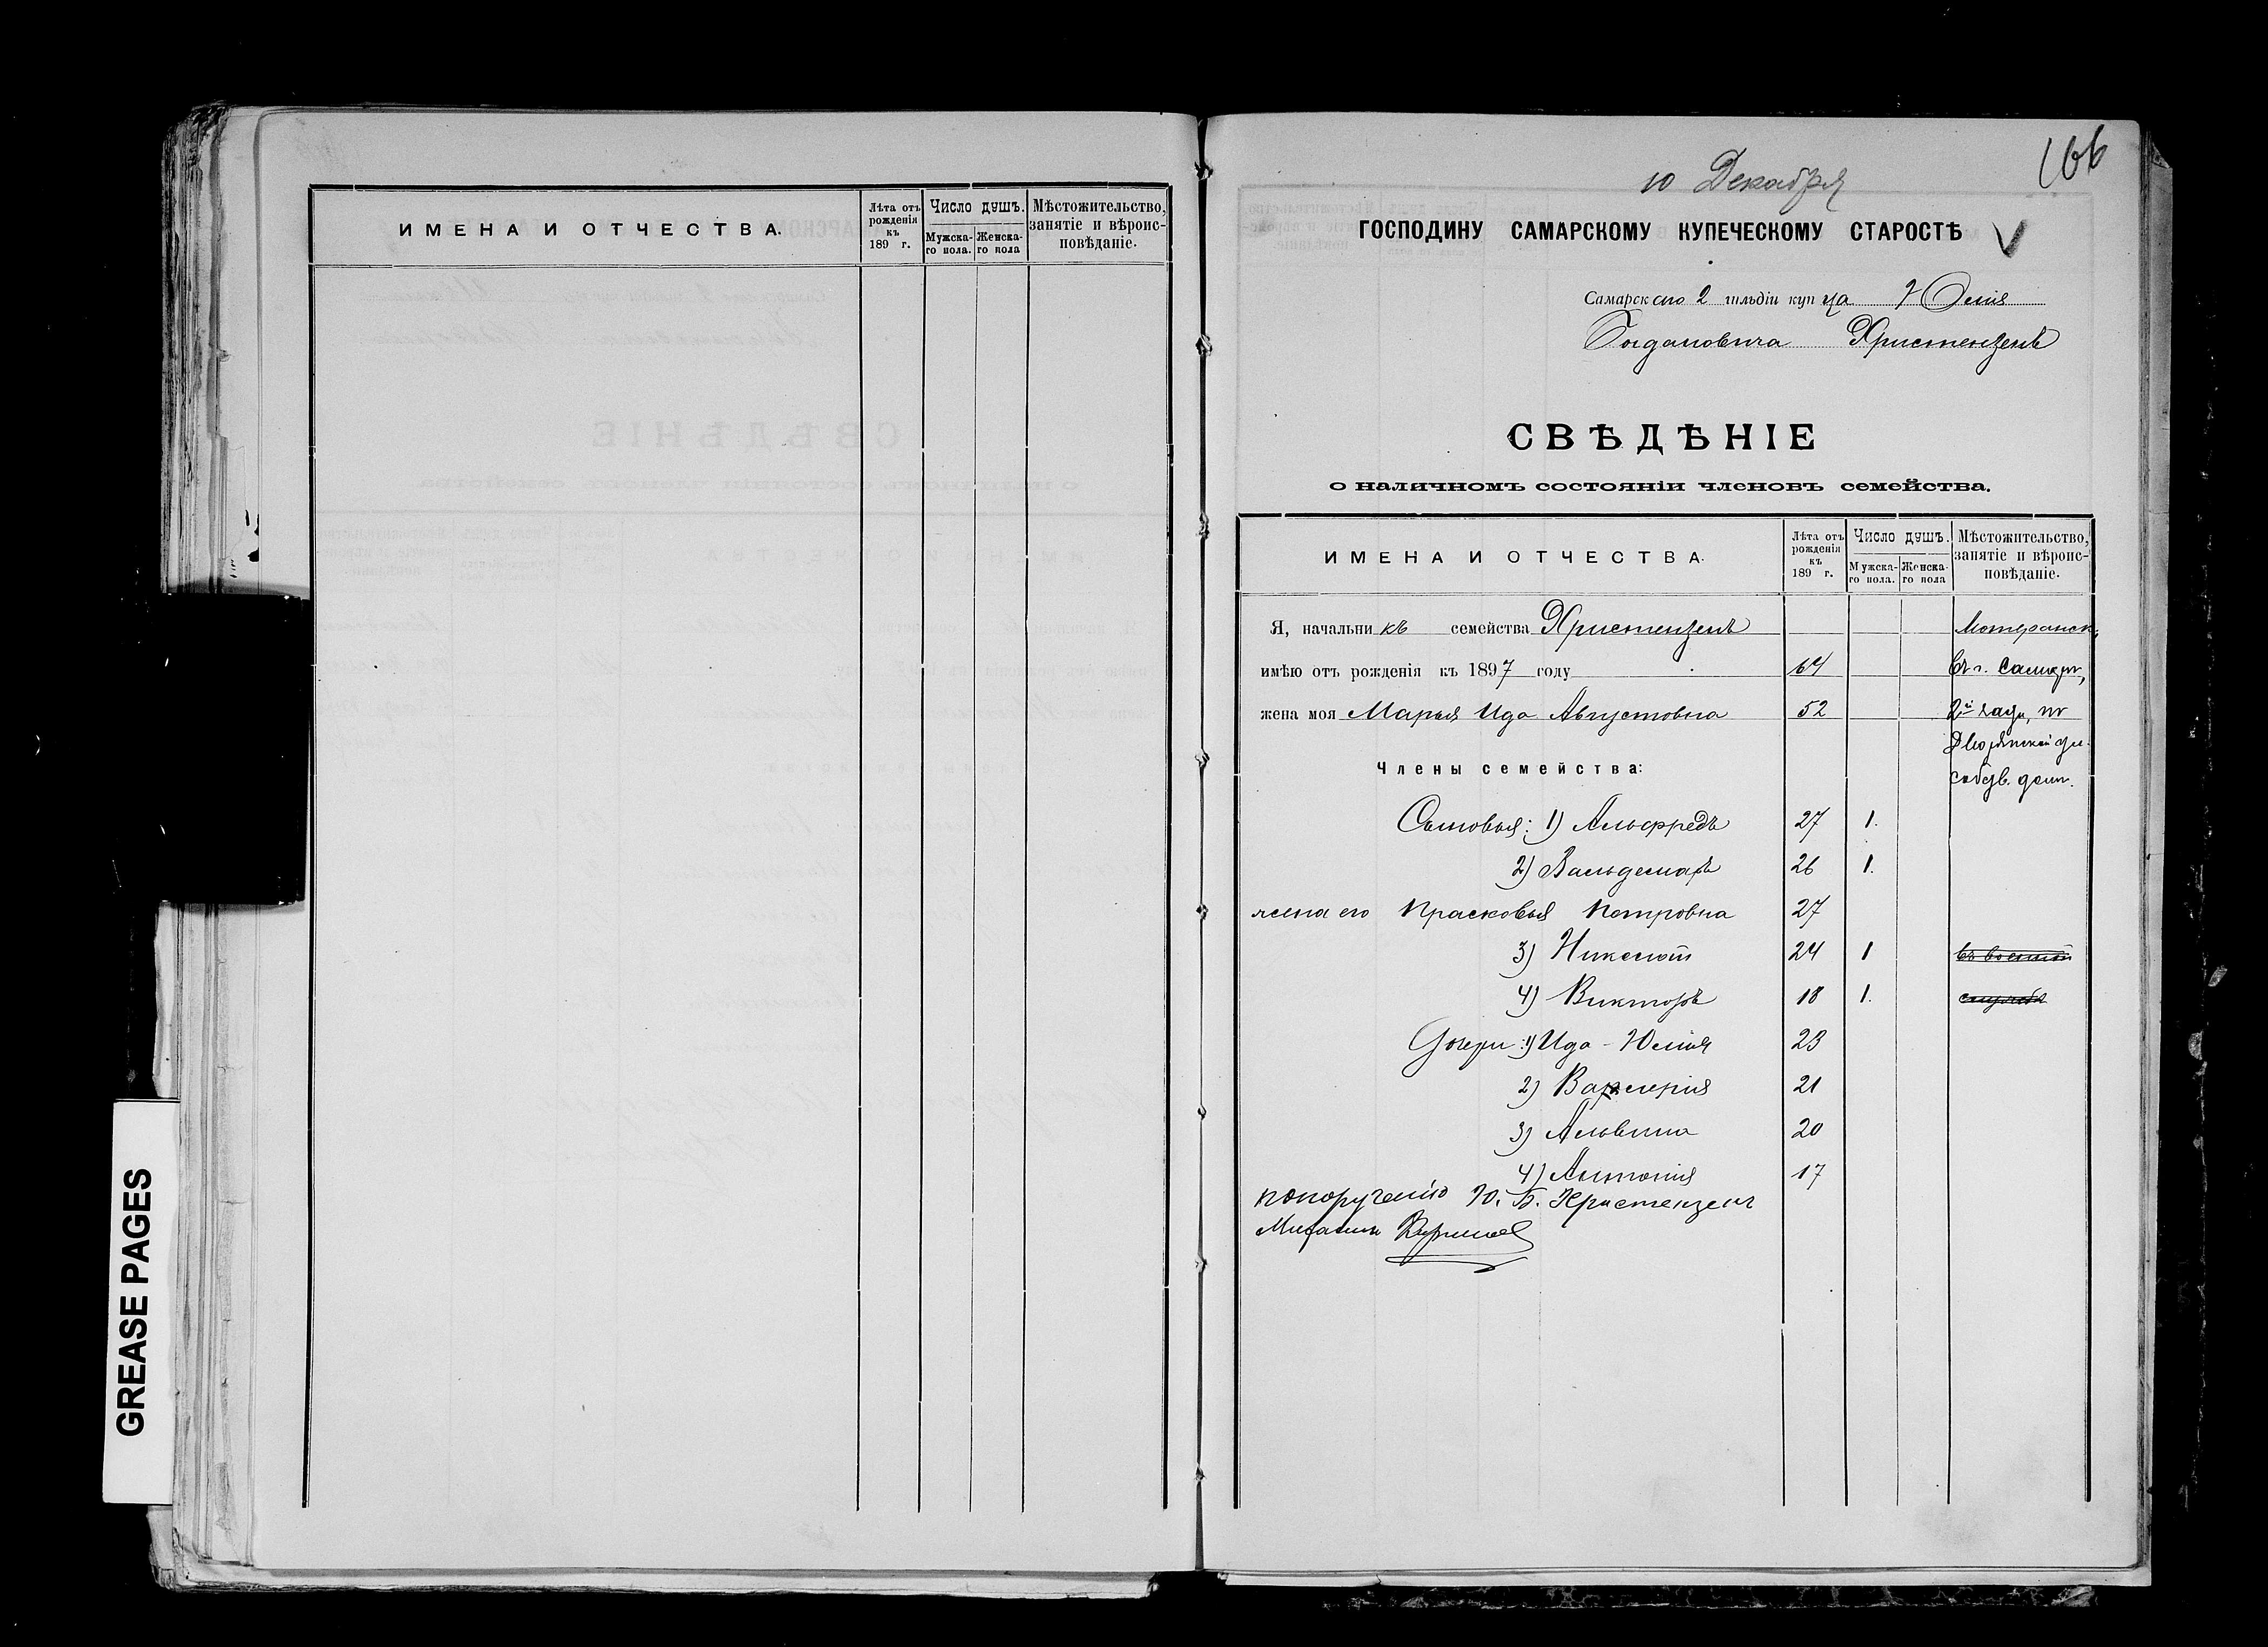 ИМЕНА И ОТЧЕСТВА.
Лѣта отъ рожденія къ 189 г.
Число душъ.
Мужска-го пола.
Женска-го пола
Мѣстожительство, занятіе и вѣроис-повѣданіе.
GREASE PAGES
166
10 Декабря
ГОСПОДИНУ САМАРСКОМУ КУПЕЧЕСКОМУ СТАРОСТѢ
Самарскаго 2 гильдіи купца Юлія
Богдановича Христензенъ
СВѢДѢНІЕ
о наличномъ состояніи членовъ семейства.
ИМЕНА И ОТЧЕСТВА.
Лѣта отъ рожденія къ 189 г.
Число душъ.
Мужска-го пола.
Женска-го пола
Мѣстожительство, занятіе и вѣроис-повѣданіе.
Я, начальникъ семейства Христензенъ Лютеранск.
имѣю отъ рожденія къ 1897 году 64 въ г. Самарѣ,
жена моя Марья Ида Августовна 52 2й части, по
Дворянской ул.
Члены семейства: собств. домъ.
Сыновья: 1) Альфредъ 27 1.
2) Вальдемаръ 26 1.
жена его Прасковья Петровна 27
3) Никелот 24 1 въ военной
4) Викторъ 18 1. службѣ
Дочери: 1) Ида-Юлія 23
2) Валерія 21
3) Альвина 20
4) Антонія 17
по порученію Ю. Б. Христензенъ
Михаилъ